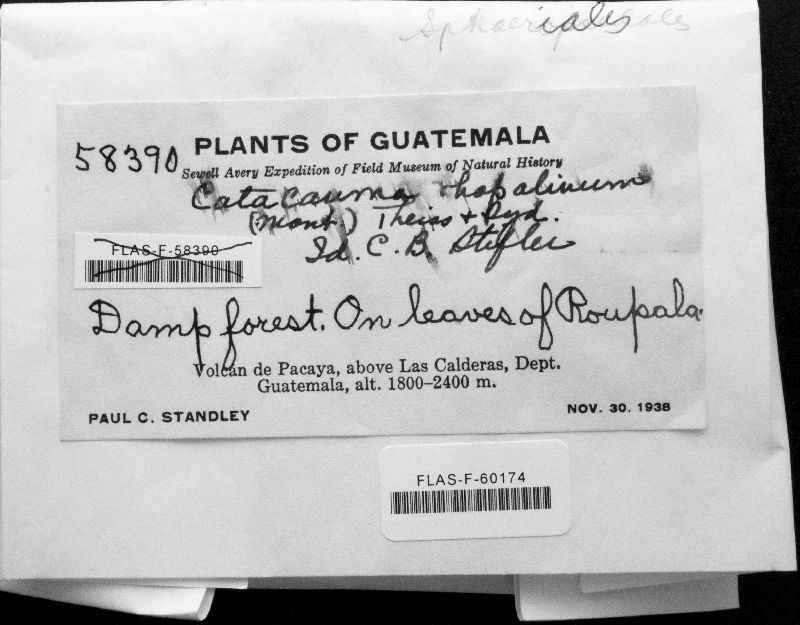 Sphaeriales
58390
PLANTS OF GUATEMALA
Sewell Avery Expedition of Field Museum of Natural History
Catacauma rhopalinum
(Mont.) Theiss + Syd.
Id. C. B. Stifler
FLAS-F-58390
Damp forest. On leaves of Roupala.
Volcán de Pacaya, above Las Calderas, Dept.
Guatemala, alt. 1800–2400 m.
PAUL C. STANDLEY
NOV. 30. 1938
FLAS-F-60174